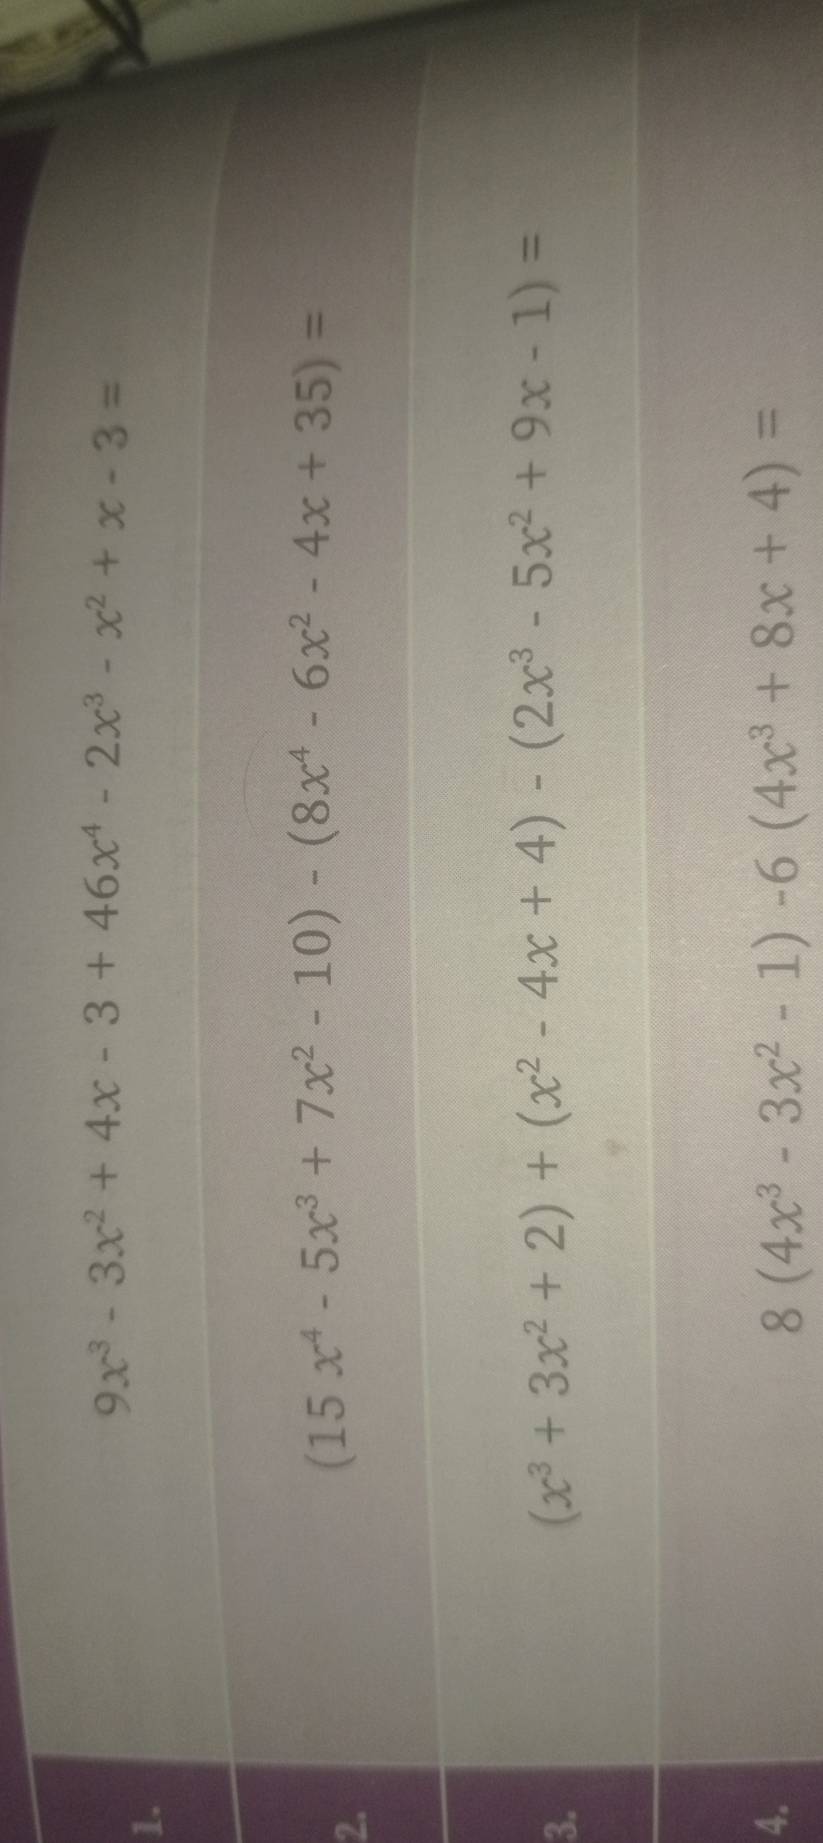 1. 9x³ - 3x² + 4x - 3 + 46x⁴ - 2x³ - x² + x - 3 =
2. (15 x⁴ - 5x³ + 7x² - 10) - (8x⁴ - 6x² - 4x + 35) =
3. (x³ + 3x² + 2) + (x² - 4x + 4) - (2x³ - 5x² + 9x - 1) =
4. 8 (4x³ - 3x² - 1) -6 (4x³ + 8x + 4) =